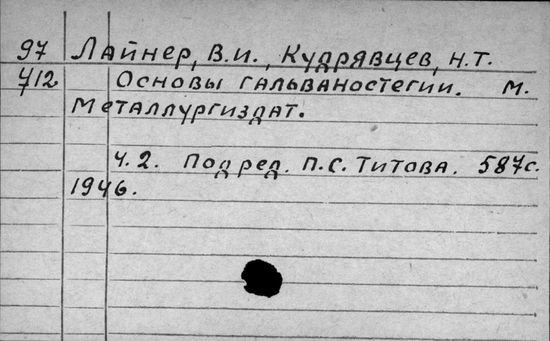 97 Лайнер, В.И., Кудрявцев, Н.Т.
412 Основы гальваностегии. М.
Металлургиздат.
Ч. 2. Под ред. П.С. Титова. 587с.
1946.